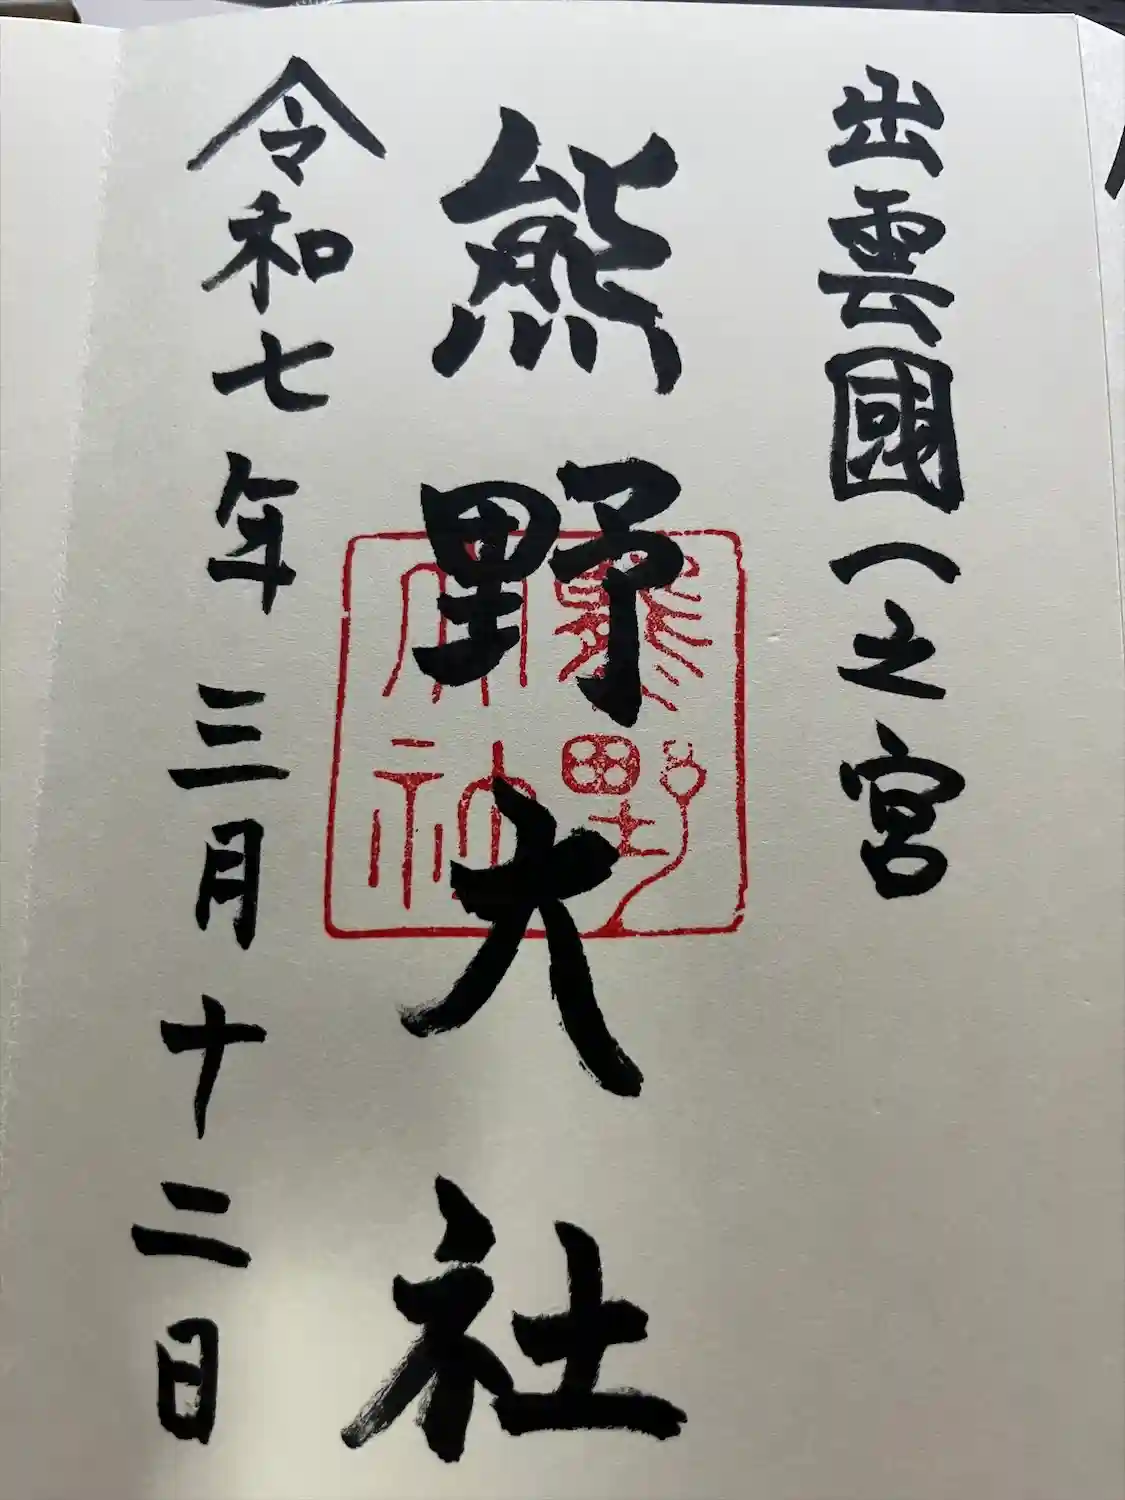 出雲國一之宮
熊野大社
熊野大神
令和七年三月十二日